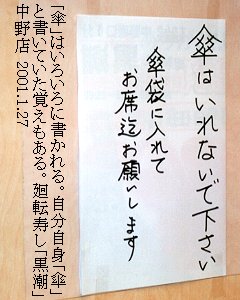 傘はいれないで下さい
傘袋に入れて
お席迄お願いします
「傘」はいろいろに書かれる。自分自身「傘」
と書いていた覚えもある。廻転寿し「黒潮」
中野店 2001.1.27